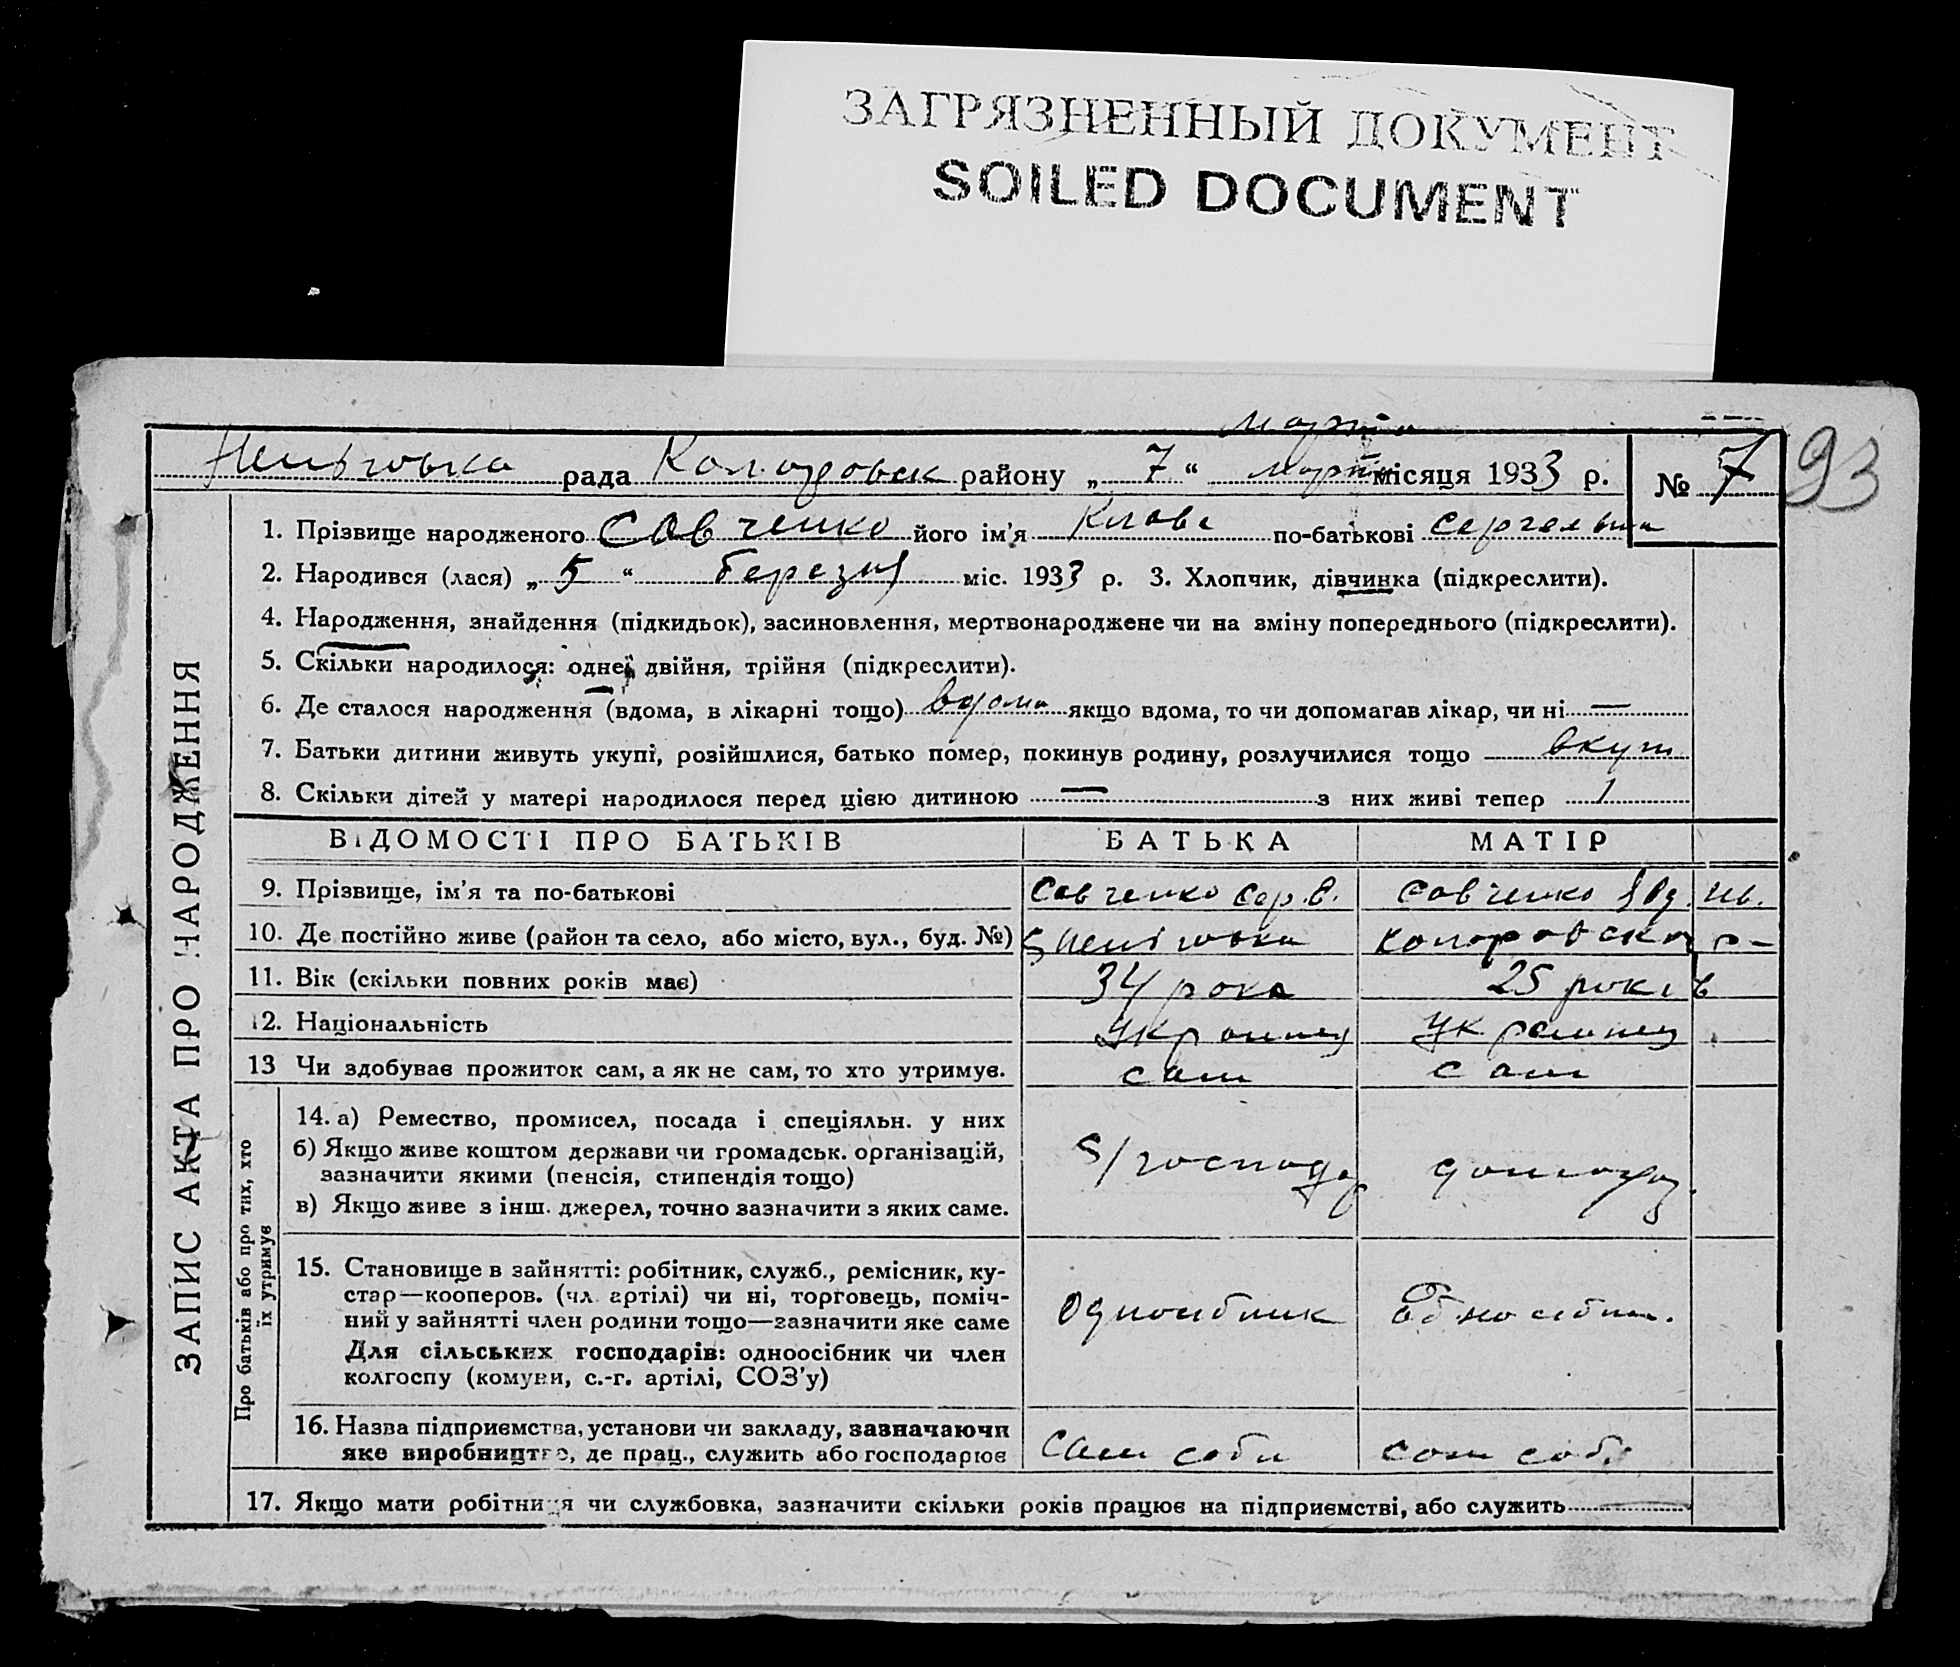 ЗАГРЯЗНЕННЫЙ ДОКУМЕНТ
SOILED DOCUMENT
марта
рада району „ 7 “ марта місяця 1933 р. № 7 93
ЗАПИС АКТА ПРО НАРОДЖЕННЯ
1. Прізвище народженого Савченко його ім'я Клава по-батькові
2. Народився (лася) „ 5 “ березня міс. 1933 р. 3. Хлопчик, дівчинка (підкреслити).
4. Народження, знайдення (підкидьок), засиновлення, мертвонароджене чи на зміну попереднього (підкреслити).
5. Скільки народилося: одне, двійня, трійня (підкреслити).
6. Де сталося народження (вдома, в лікарні тощо) вдома якщо вдома, то чи допомагав лікар, чи ні —
7. Батьки дитини живуть укупі, розійшлися, батько помер, покинув родину, розлучилися тощо вкупі
8. Скільки дітей у матері народилося перед цією дитиною — з них живі тепер 1
ВІДОМОСТІ ПРО БАТЬКІВ БАТЬКА МАТІР
9. Прізвище, ім'я та по-батькові Савченко Сер. Савченко
10. Де постійно живе (район та село, або місто, вул., буд. №)
11. Вік (скільки повних років має) 34 рока 25 років
12. Національність Українец Українец
13 Чи здобував прожиток сам, а як не сам, то хто утримує. сам сам
Про батьків або про тих, хто їх утримує
14. а) Ремество, промисел, посада і спеціяльн. у них
б) Якщо живе коштом держави чи громадськ. організацій,
зазначити якими (пенсія, стипендія тощо)
в) Якщо живе з інш. джерел, точно зазначити з яких саме.
15. Становище в зайнятті: робітник, служб., ремісник, ку-
стар—кооперов. (чл. артілі) чи ні, торговець, поміч-
ний у зайнятті член родини тощо—зазначити яке саме
Для сільських господарів: одноосібник чи член
колгоспу (комуни, с.-г. артілі, СОЗ'у)
16. Назва підприємства, установи чи закладу, зазначаючи
яке виробництво, де прац., служить або господарює сам соби сам собі
17. Якщо мати робітниця чи службовка, зазначити скільки років працює на підприємстві, або служить —